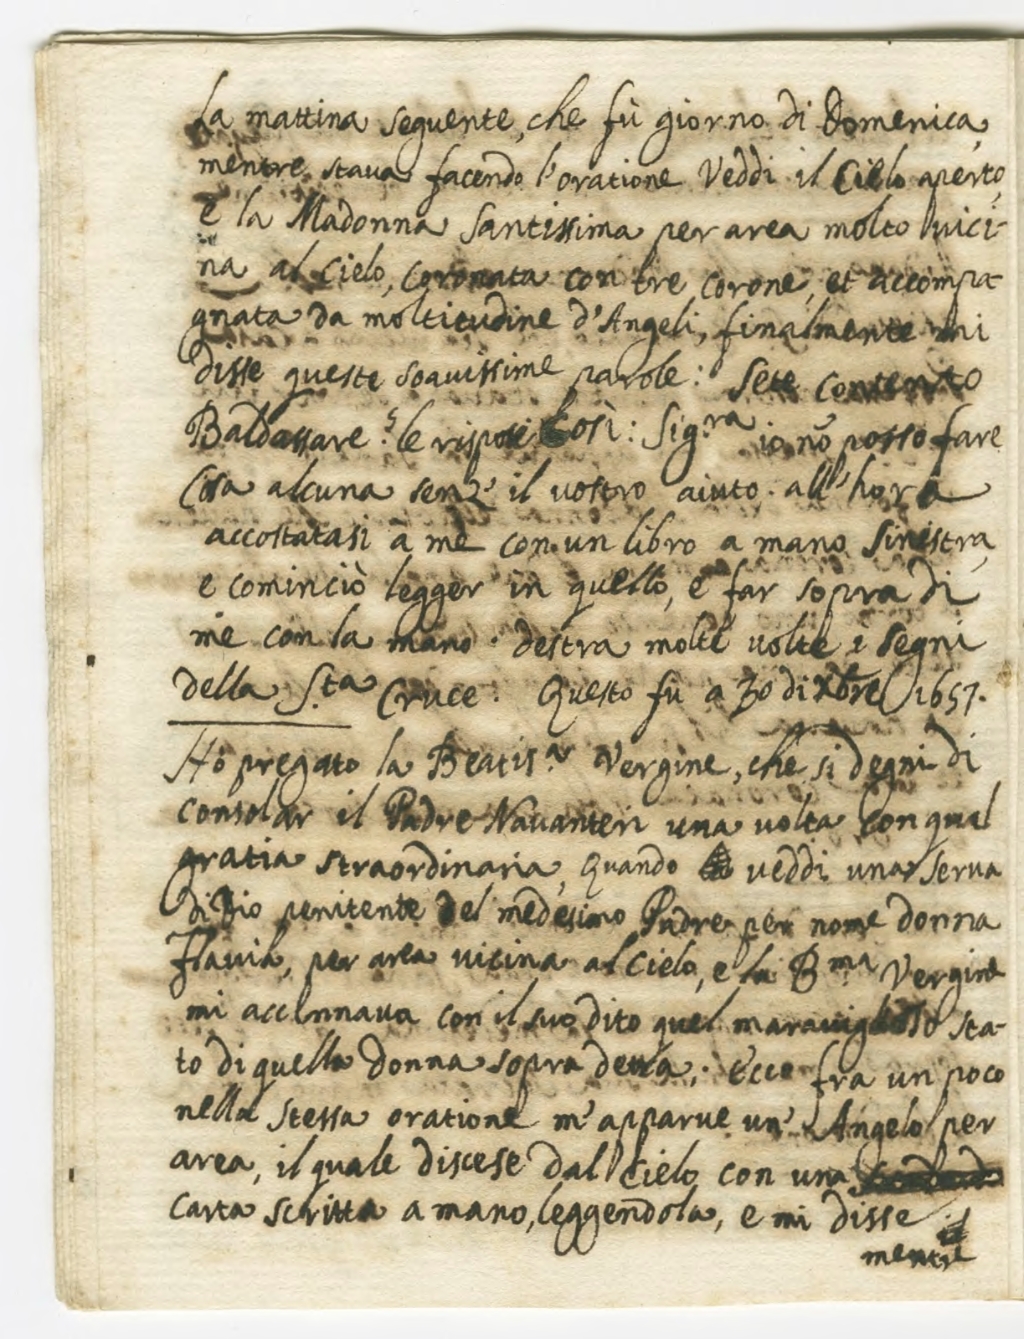 La mattina seguente, che fù giorno di Domenica,
mentre stava facendo l'oratione Veddi il Cielo aperto,
e la Madonna Santissima per area molto vici-
na al Cielo, coronata con tre corone, et accompa-
gnata da moltitudine d'Angeli, finalmente mi
disse queste soavissime parole: Sete contento
Baldassare? le risposi così: Sig.ra io nõ posso fare
Cosa alcuna senz' il vostro aiuto. all'hora
accostatasi à me con un libro a mano sinistra,
e cominciò legger in quello, e far sopra di
me con la mano destra molte volte i segni
della S.ta Cruce. Questo fu a 30 di Xbre 1657.
Hò pregato la Beatis.a Vergine, che si degni di
consolar il Padre Navanteri una volta con qual
gratia straordinaria, Quando veddi una serva
di Dio penitente del medesimo Padre per nome donna
Flavia, per area vicina al Cielo, e la B.ma Vergine
mi accennava con il suo dito quel maraviglioso sta-
to di quella donna sopra detta; Ecce fra un poco
nella stessa oratione m'apparve un' Angelo per
area, il quale discese dal Cielo con una
carta scritta a mano, leggendola, e mi disse
mentre